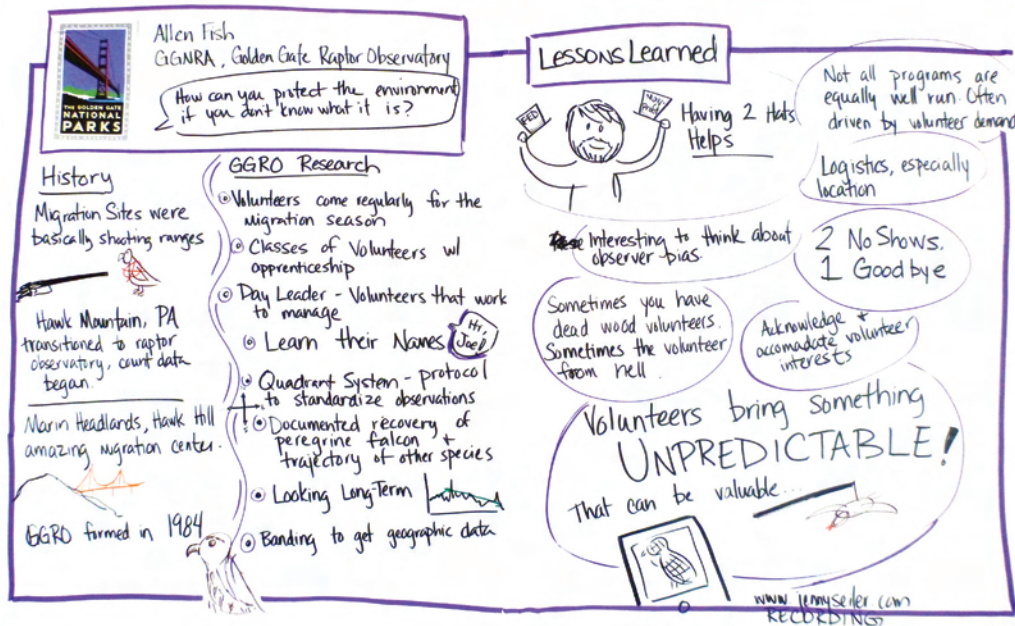 THE GOLDEN GATE
NATIONAL
PARKS
Allen Fish
GGNRA, Golden Gate Raptor Observatory
How can you protect the environment
if you don't know what it is?
History
Migration Sites were
basically shooting ranges
Hawk Mountain, PA
transitioned to raptor
observatory, count data
began.
Marin Headlands, Hawk Hill
amazing migration center.
GGRO formed in 1984
GGRO Research
Volunteers come regularly for the
migration season
Classes of Volunteers w/
apprenticeship
Day Leader - Volunteers that work
to manage
Learn their Names
Hi,
Joe!
Quadrant System - protocol
to standardize observations
Documented recovery of
peregrine falcon +
trajectory of other species
Looking Long-Term
Banding to get geographic data
Lessons Learned
FED
Having 2 Hats
Helps
Not all programs are
equally well run. Often
driven by volunteer demand
Logistics, especially
location
Interesting to think about
observer bias.
2 No Shows,
1 Goodbye
Sometimes you have
dead wood volunteers.
Sometimes the volunteer
from hell.
Acknowledge +
accomadate volunteer
interests
Volunteers bring something
UNPREDICTABLE!
That can be valuable...
www.jennyseiler.com
RECORDING